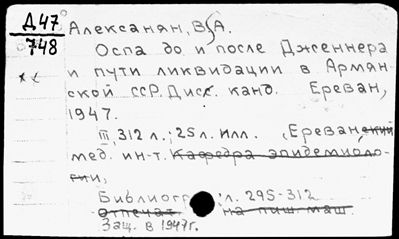 Д47
748
Алексанян, В.А.
Оспа до и после Дженнера
и пути ликвидации в Армян
ской ссР. Дисс. канд. Ереван,
1947.
III, 312 л.; 25 л. илл. (Ереванский
мед. ин-т. Кафедра эпидемиоло-
гии,
Библиогр.: л. 295-312
отпечат на пиш маш.
Защ. в 1947г.